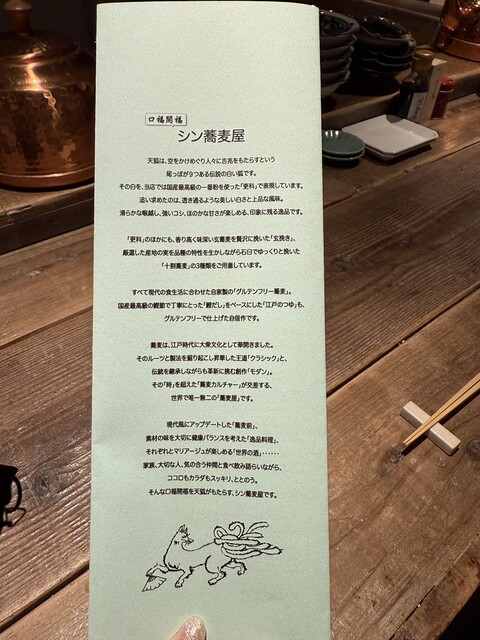 口福開福
シン蕎麦屋
天狐は、空をかけめぐり人々に吉兆をもたらすという
尾っぽが9つある伝説の白い狐です。
その白を、当店では国産最高級の一番粉を使った「更科」で表現しています。
追い求めたのは、透き通るような美しい白さと上品な風味。
滑らかな喉越し、強いコシ、ほのかな甘さが楽しめる、印象に残る逸品です。
「更科」のほかにも、香り高く味深い玄蕎麦を贅沢に挽いた「玄挽き」、
厳選した産地の実を品種の特性を生かしながら石臼でゆっくりと挽いた
「十割蕎麦」の3種類をご用意しています。
すべて現代の食生活に合わせた自家製の「グルテンフリー蕎麦」。
国産最高級の鰹節で丁寧にとった「鰹だし」をベースにした「江戸のつゆ」も、
グルテンフリーで仕上げた自信作です。
蕎麦は、江戸時代に大衆文化として華開きました。
そのルーツと製法を掘り起こし昇華した王道「クラシック」と、
伝統を継承しながらも革新に挑む創作「モダン」。
その「時」を超えた「蕎麦カルチャー」が交差する、
世界で唯一無二の「蕎麦屋」です。
現代風にアップデートした「蕎麦前」、
素材の味を大切に健康バランスを考えた「逸品料理」、
それぞれとマリアージュが楽しめる「世界の酒」‥‥‥
家族、大切な人、気の合う仲間と食べ飲み語らいながら、
ココロもカラダもスッキリ、ととのう。
そんな口福開福を天狐がもたらす、シン蕎麦屋です。